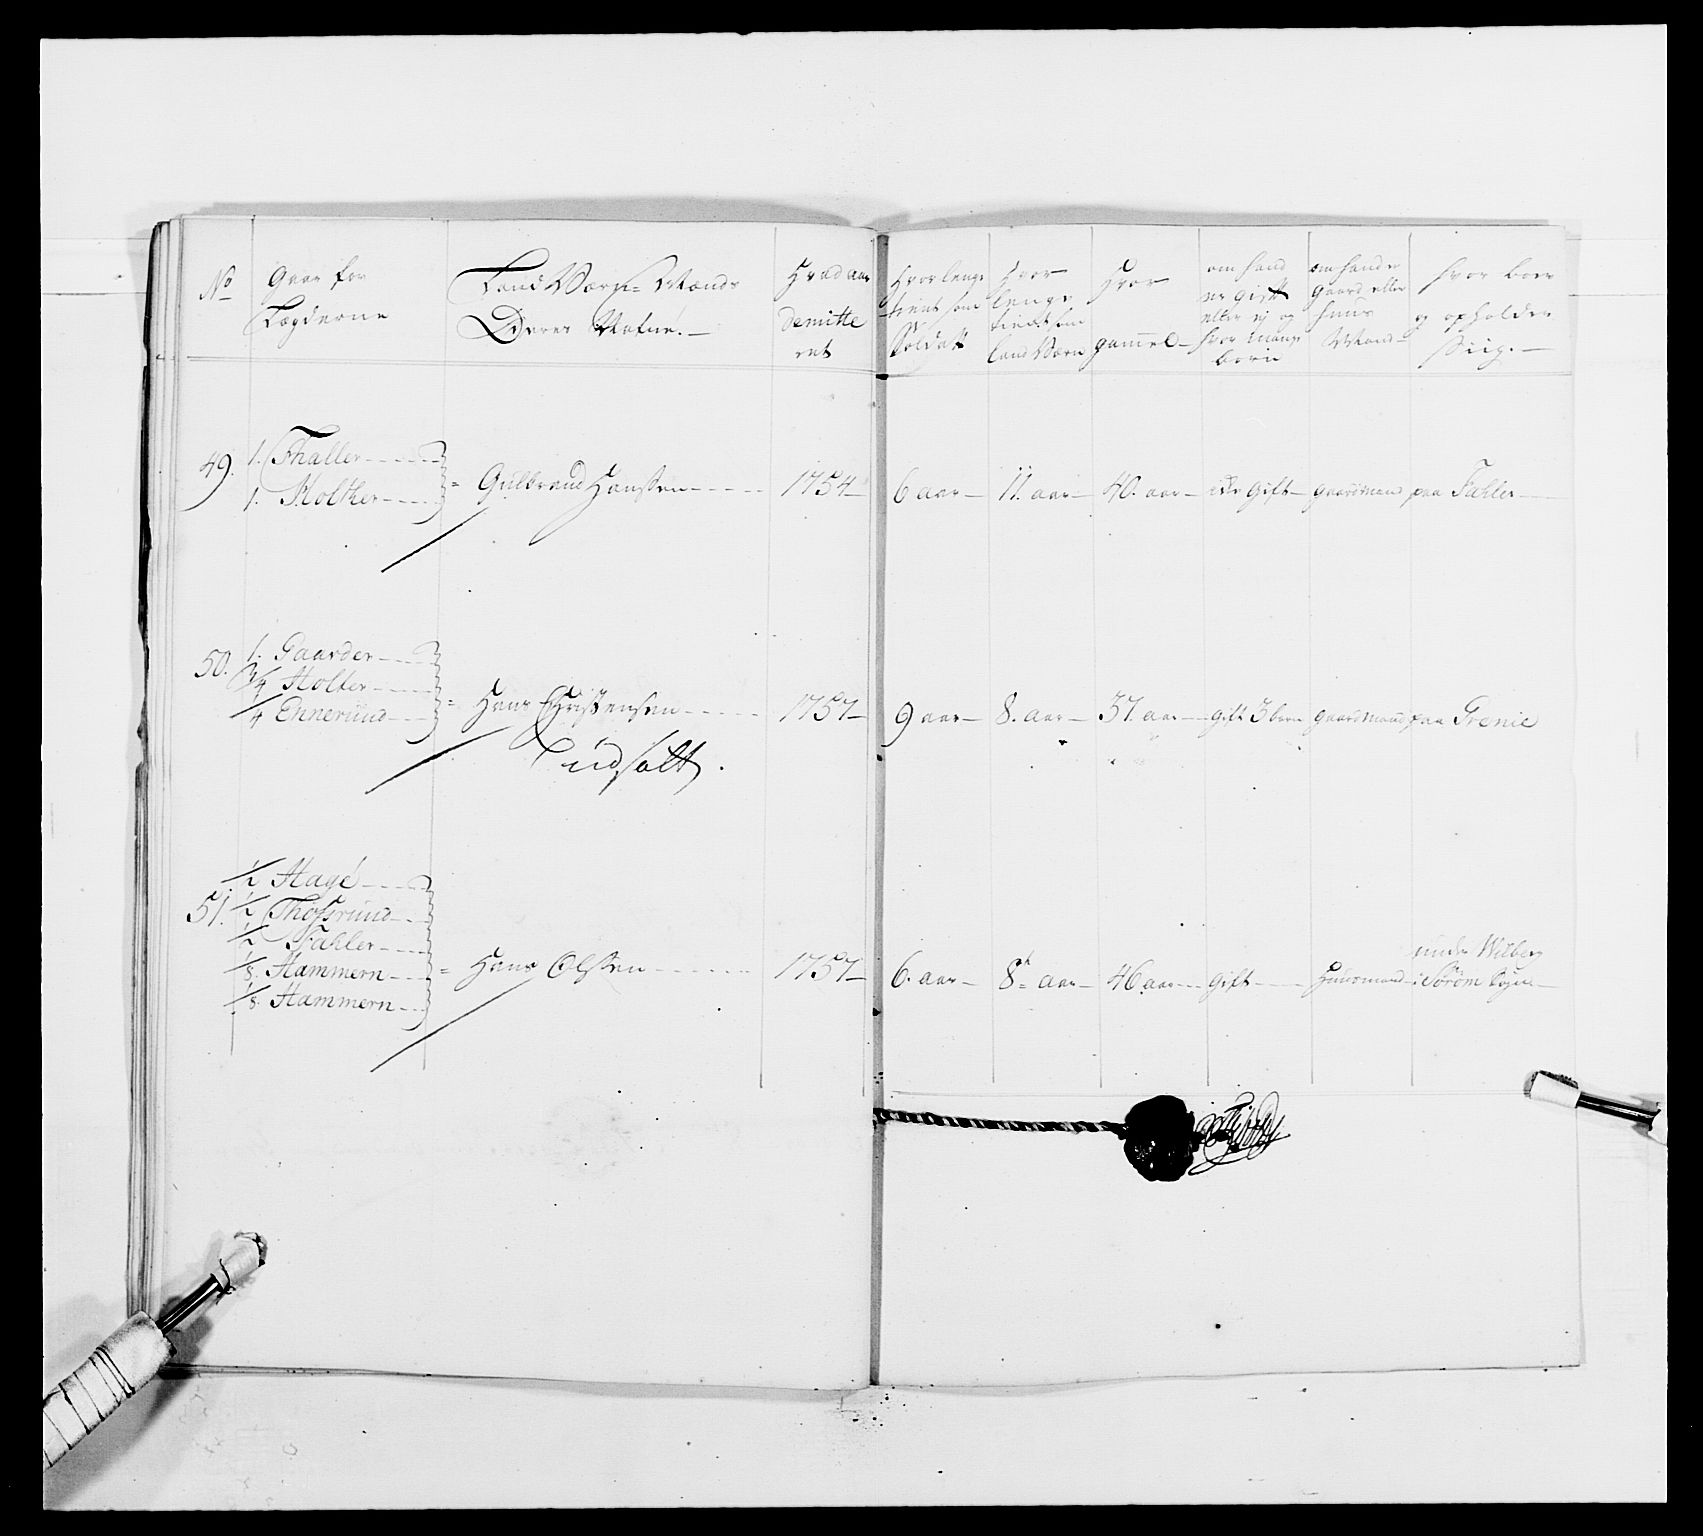 No
Gaar for
Lægderne
Land Værn=Mænds
Deres Nafne. —
Hvad aar
demitte
ret
Hvorlenge
tient som
Soldatt
Hvor
lenge
tient som
land Værn
Hvor
gammel —
om hand
er gift
eller ej og
hvor mange
børn
om hand er
gaard eller
huus
Mand —
hvor boer
og opholder
siig. —
49. 1. Thaller
1. Holther = Gulbrand Hanssen 1754 — 6 aar — 11. aar — 40. aar — gift — gaardmand paa Fahler
50. 1. Gaarder
3/4 Holter
1/4 Ennerund = Hans Christensen 1757 — 9 aar — 8. aar — 37. aar — gift 3 børn gaardmand paa Grenie
udsatt.
1/2 Hage
51. 1/2 Thossrund
1/2 Fahler
1/8. Hammern = Hans Olssen 1757 — 6. aar — 8 aar — 46 aar — gift — Huusmand
1/8. Hammern
under Wilberg
i Sørom Sogn —